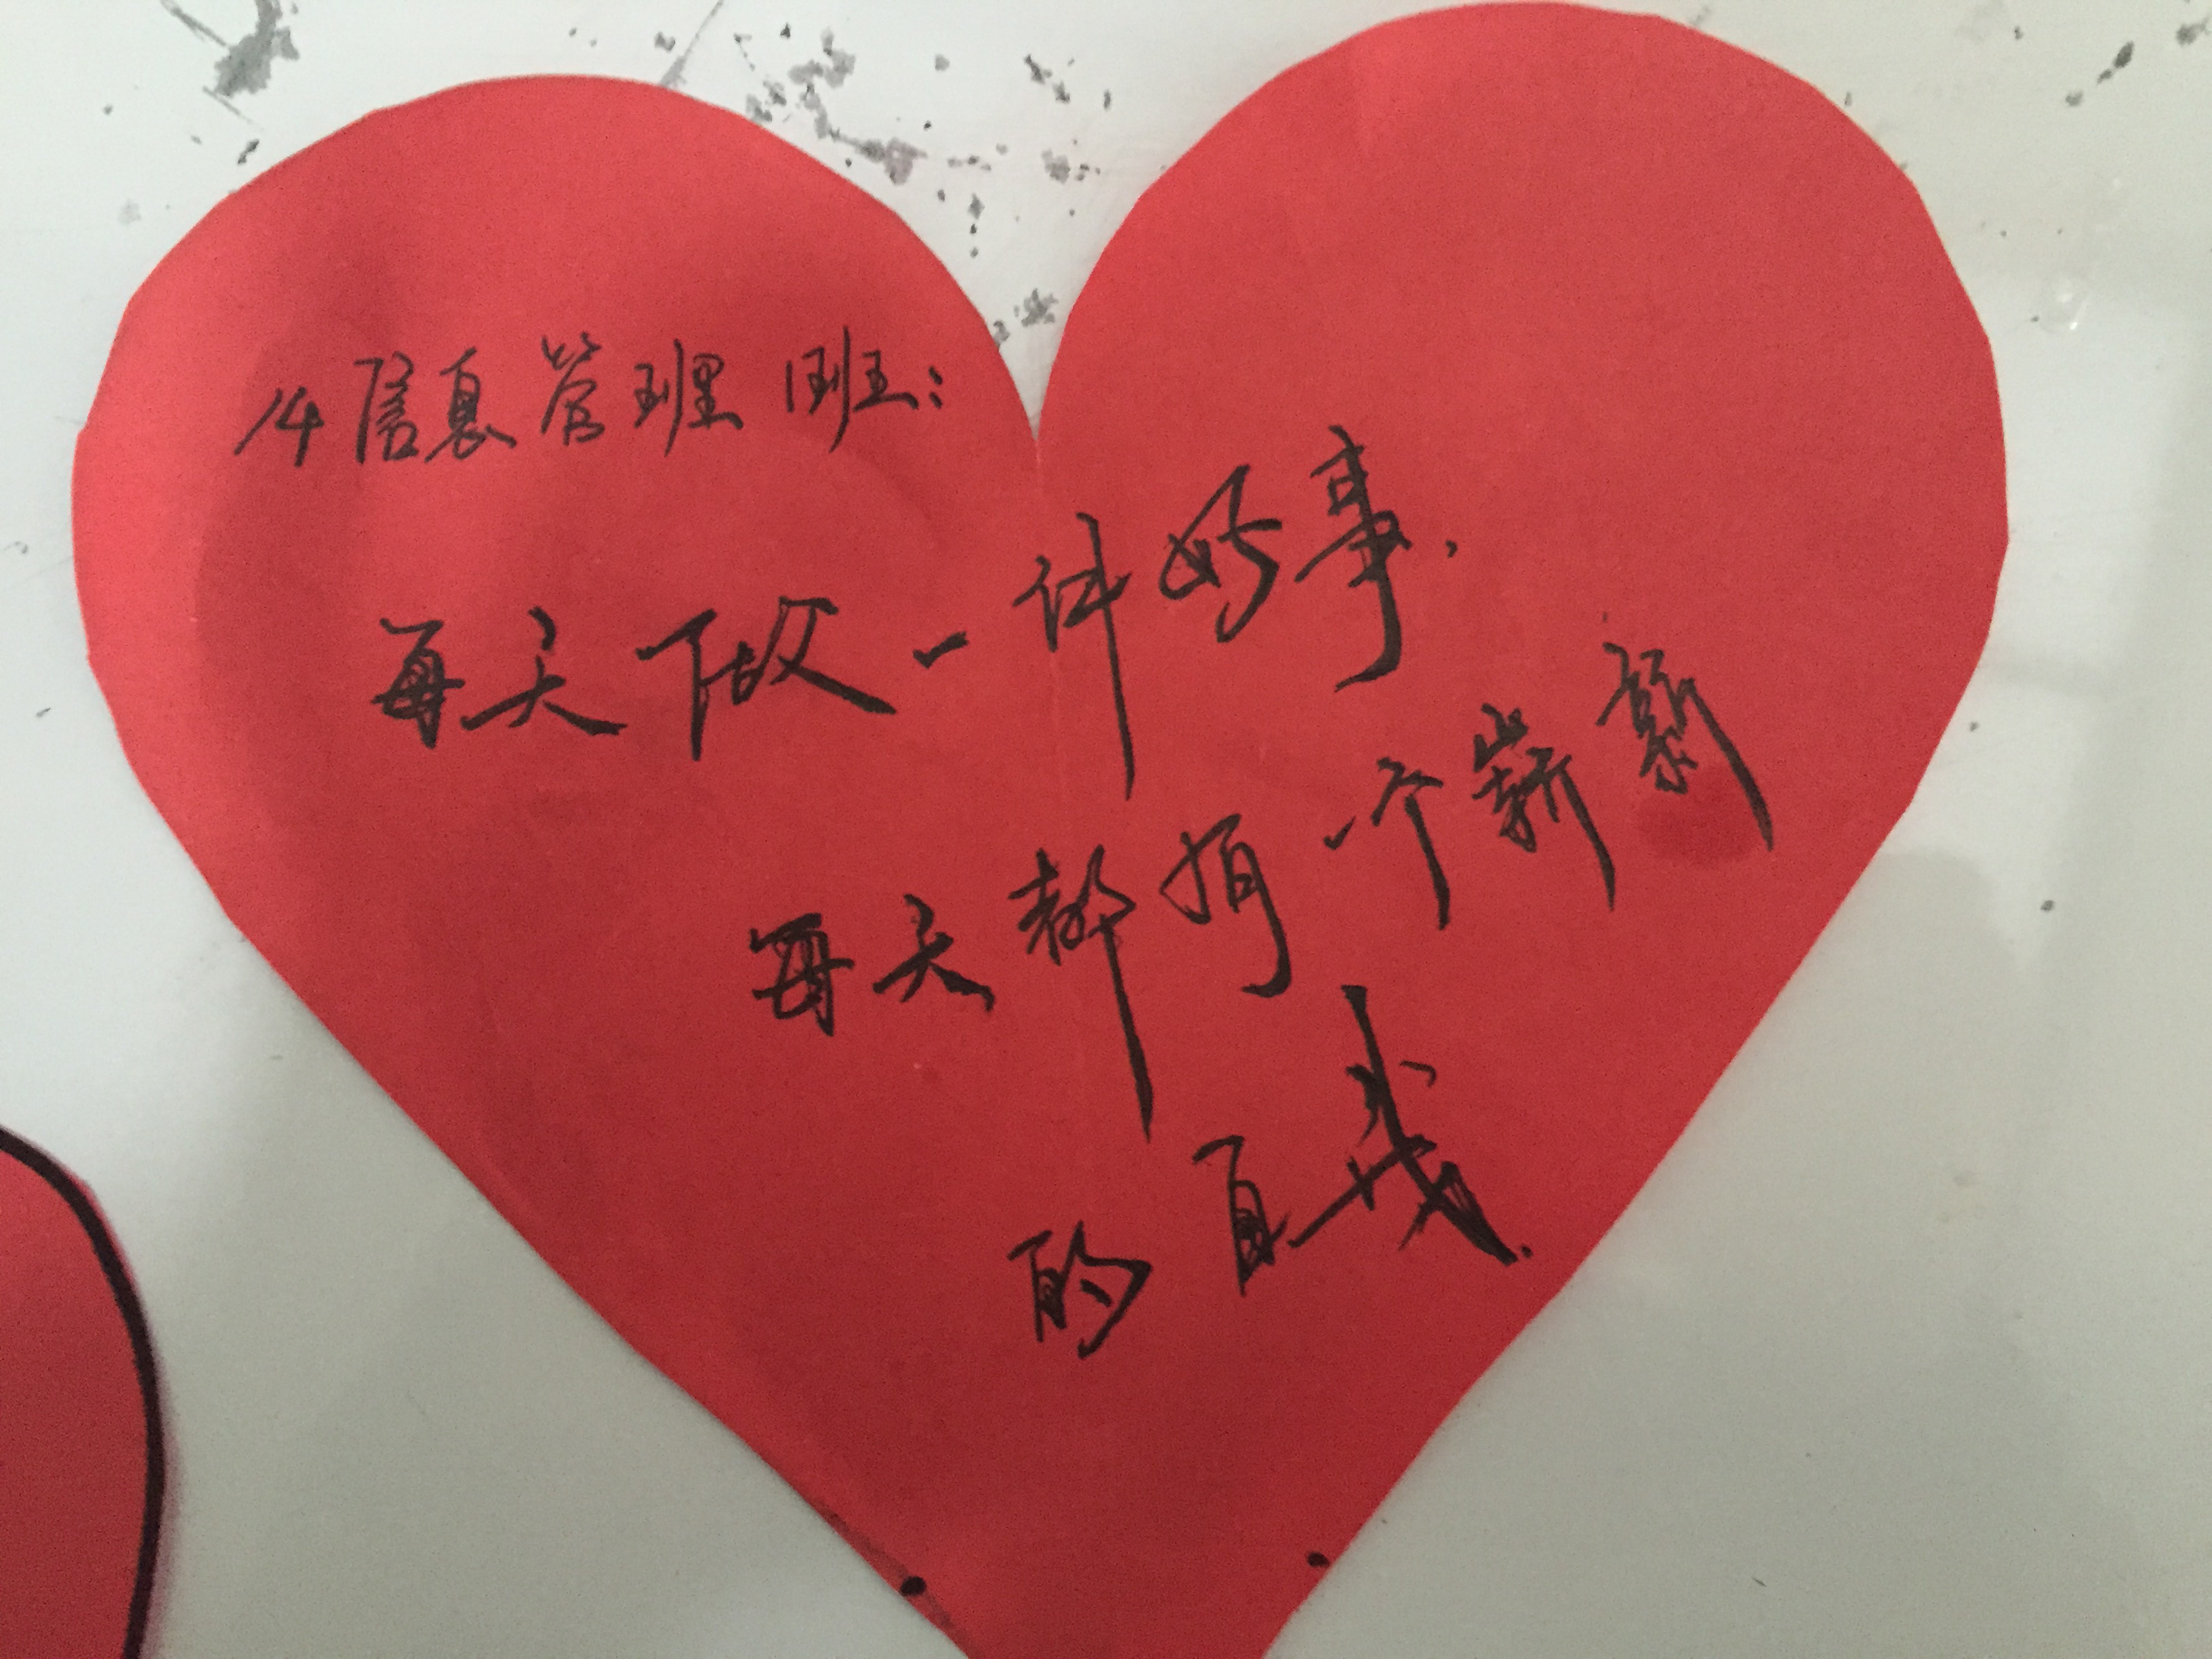 14信息管理1班:
每天做一件好事,
每天都有一个崭新
的自我.